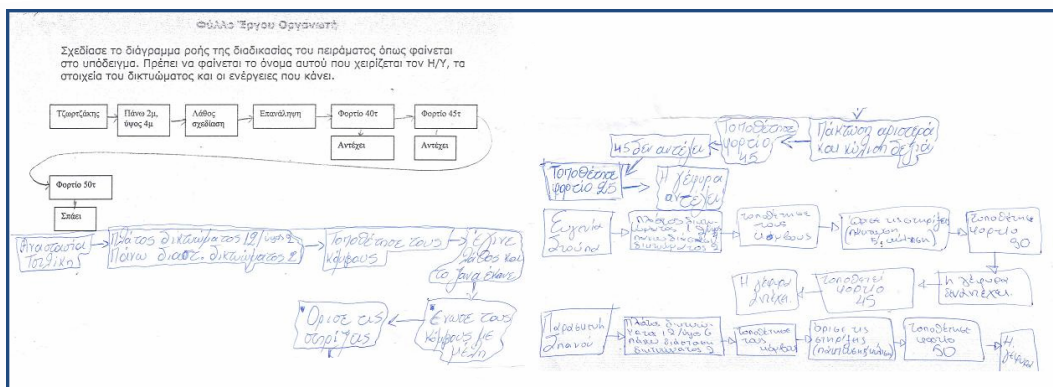 Φύλλο Έργου Οργανωτή
Σχεδίασε το διάγραμμα ροής της διαδικασίας του πειράματος όπως φαίνεται
στο υπόδειγμα. Πρέπει να φαίνεται το όνομα αυτού που χειρίζεται τον Η/Υ, τα
στοιχεία του δικτυώματος και οι ενέργειες που κάνει.
Τζωρτζάκης
Πάνω 2μ,
ύψος 4μ
Λάθος
σχεδίαση
Επανάληψη
Φορτίο 40τ
Φορτίο 45τ
Αντέχει
Αντέχει
Φορτίο 50τ
Σπάει
Αναστασία
Πλάτος δικτυώματος 12/
Πάνω διαστ. δικτυώματος 2
Τοποθέτησε τους
κόμβους
Έγινε
λάθος και
το ξανα έκανε
Ένωσε τους
κόμβους με
μέλη
Όρισε τις
στηρίξεις
Πάκτωση αριστερά
και κύλιση δεξιά
Τοποθέτησε
φορτίο
45
45 δεν αντέχει
Τοποθέτησε
φορτίο 25
Η γέφυρα
αντέχει
Ευγενία
τοποθέτησε
τους
κόμβους
Όρισε τις στηρίξεις
τοποθέτησε
φορτίο
90
Η γέφυρα
δεν αντέχει.
τοποθετεί
φορτίο
45
Η γέφυρα
αντέχει.
Παρασκευή
Σπανού
τοποθέτησε
τους
κόμβους
Όρισε τις
στηρίξεις
τοποθέτησε
φορτίο
50
Η
γέφυρα